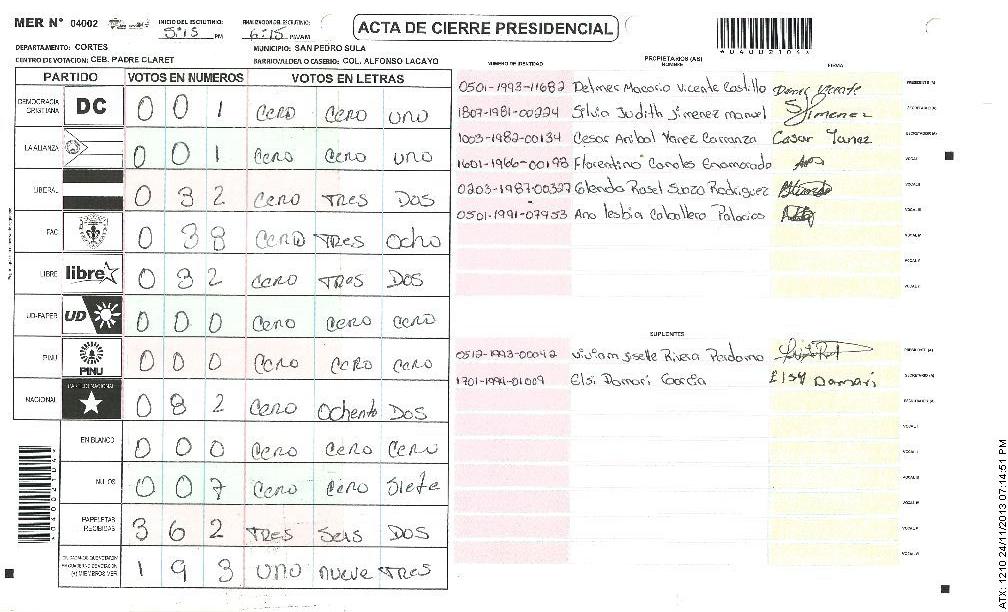 MER N° 04002
INICIO DEL ESCRUTINIO: 5:15 PM
FINALIZACION DEL ESCRUTINIO: 6:15 PM/AM
ACTA DE CIERRE PRESIDENCIAL
DEPARTAMENTO: CORTES
MUNICIPIO: SAN PEDRO SULA
CENTRO DE VOTACION: CEB. PADRE CLARET
BARRIO/ALDEA O CASERIO: COL. ALFONSO LACAYO
PARTIDO VOTOS EN NUMEROS VOTOS EN LETRAS
DEMOCRACIA CRISTIANA DC 0 0 1 CERO CERO UNO
LA ALIANZA 0 0 1 CERO CERO UNO
LIBERAL 0 3 2 CERO TRES DOS
FAC 0 38 CERO TRES Ocho
LIBRE libre 0 3 2 CERO TRES DOS
UD-FAPER UD 0 0 0 Cero CERO CERO
PINU PINU 0 0 0 CERO CERO CERO
NACIONAL 0 8 2 CERO Ochenta DOS
EN BLANCO 0 0 0 CERO CERO CERO
NULOS 0 0 7 CERO CERO Siete
PAPELETAS RECIBIDAS 3 6 2 TRES Seis DOS
1 9 3 UNO nueve TRES
NUMERO DE IDENTIDAD PROPIETARIOS (AS) NOMBRE FIRMA
0501-1993-11682 Delmer Macario Vicente Castillo PRESIDENTE (A)
1807-1981-00224 Silvia Judith Jimenez manuel SJimenez SECRETARIO (A)
1003-1982-00134 Cesar Anibal Yanez Carranza Cesar Yanez
1601-1966-00198 Florentino Canales Enamorado VOCAL I
0203-1987-00327 Glenda Rosel Suazo Rodriguez VOCAL II
0501-1991-07953 Ana lesbia Caballero Palacios VOCAL III
VOCAL IV
VOCAL V
VOCAL VI
SUPLENTES
0512-1993-00042 Viviam Jiselle Rivera Perdomo PRESIDENTE (A)
1701-1994-01009 Elsi Damari Garcia Elsy Damari SECRETARIO (A)
VOCAL I
VOCAL II
VOCAL III
VOCAL IV
VOCAL V
VOCAL VI
ATX: 1210 24/11/2013 07:14:51 PM